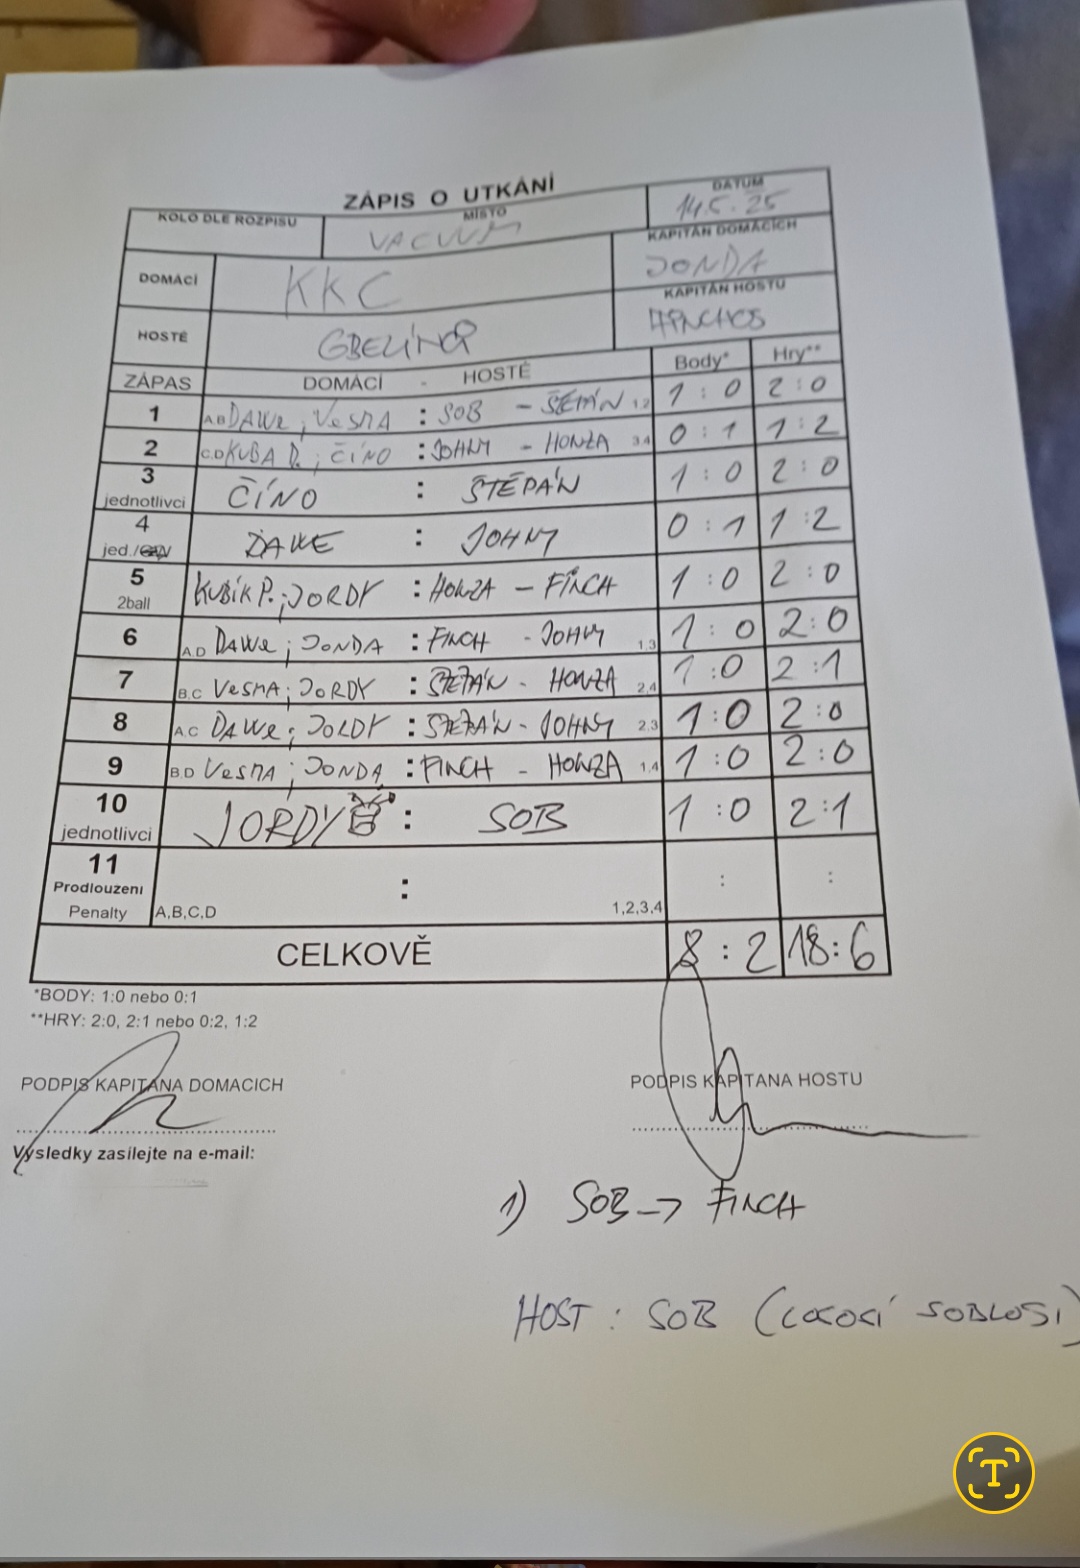 ZÁPIS O UTKÁNÍ
KOLO DLE ROZPISU MÍSTO VACUUM DATUM 14.5.25
DOMÁCÍ KKC KAPITÁN DOMÁCÍCH JONDA
HOSTÉ KAPITÁN HOSTŮ
ZÁPAS DOMÁCÍ - HOSTÉ Body* Hry**
1 A.B DAWE ; VESNA : SOB - ŠTĚPÁN 1,2 1 : 0 2 : 0
2 C.D KUBA P. ; ČÍNO : JOHNY - HONZA 3.4 0 : 1 1 : 2
3 jednotlivci ČÍNO : ŠTĚPÁN 1 : 0 2 : 0
4 jed./ DAWE : JOHNY 0 : 1 1 : 2
5 2ball KUBÍK P. ; JORDY : HONZA - FINCH 1 : 0 2 : 0
6 A.D DAWE ; JONDA : FINCH - JOHNY 1,3 1 : 0 2 : 0
7 B.C VESNA ; JORDY : ŠTĚPÁN - HONZA 2,4 1 : 0 2 : 1
8 A.C DAWE ; JORDY : ŠTĚPÁN - JOHNY 2.3 1 : 0 2 : 0
9 B.D VESNA ; JONDA : FINCH - HONZA 1,4 1 : 0 2 : 0
10 jednotlivci JORDY : SOB 1 : 0 2 : 1
11 Prodlouzeni Penalty A,B,C,D : 1,2,3,4 : :
CELKOVĚ 8 : 2 18 : 6
*BODY: 1:0 nebo 0:1
**HRY: 2:0, 2:1 nebo 0:2, 1:2
PODPIS KAPITANA DOMACICH PODPIS KAPITANA HOSTU
Výsledky zasílejte na e-mail:
1) SOB -> FINCH
HOST : SOB